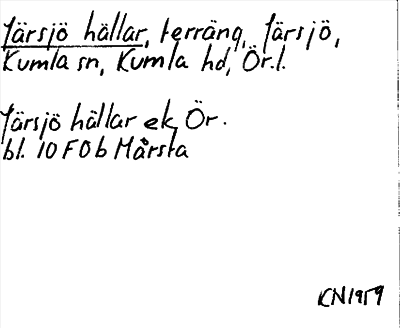 Järsjö hällar, terräng, Järsjö,
Kumla sn, Kumla hd, Ör. l.
Järsjö hällar ek, Ör.
bl. 10 F 0 b Mårsta
KN 1959